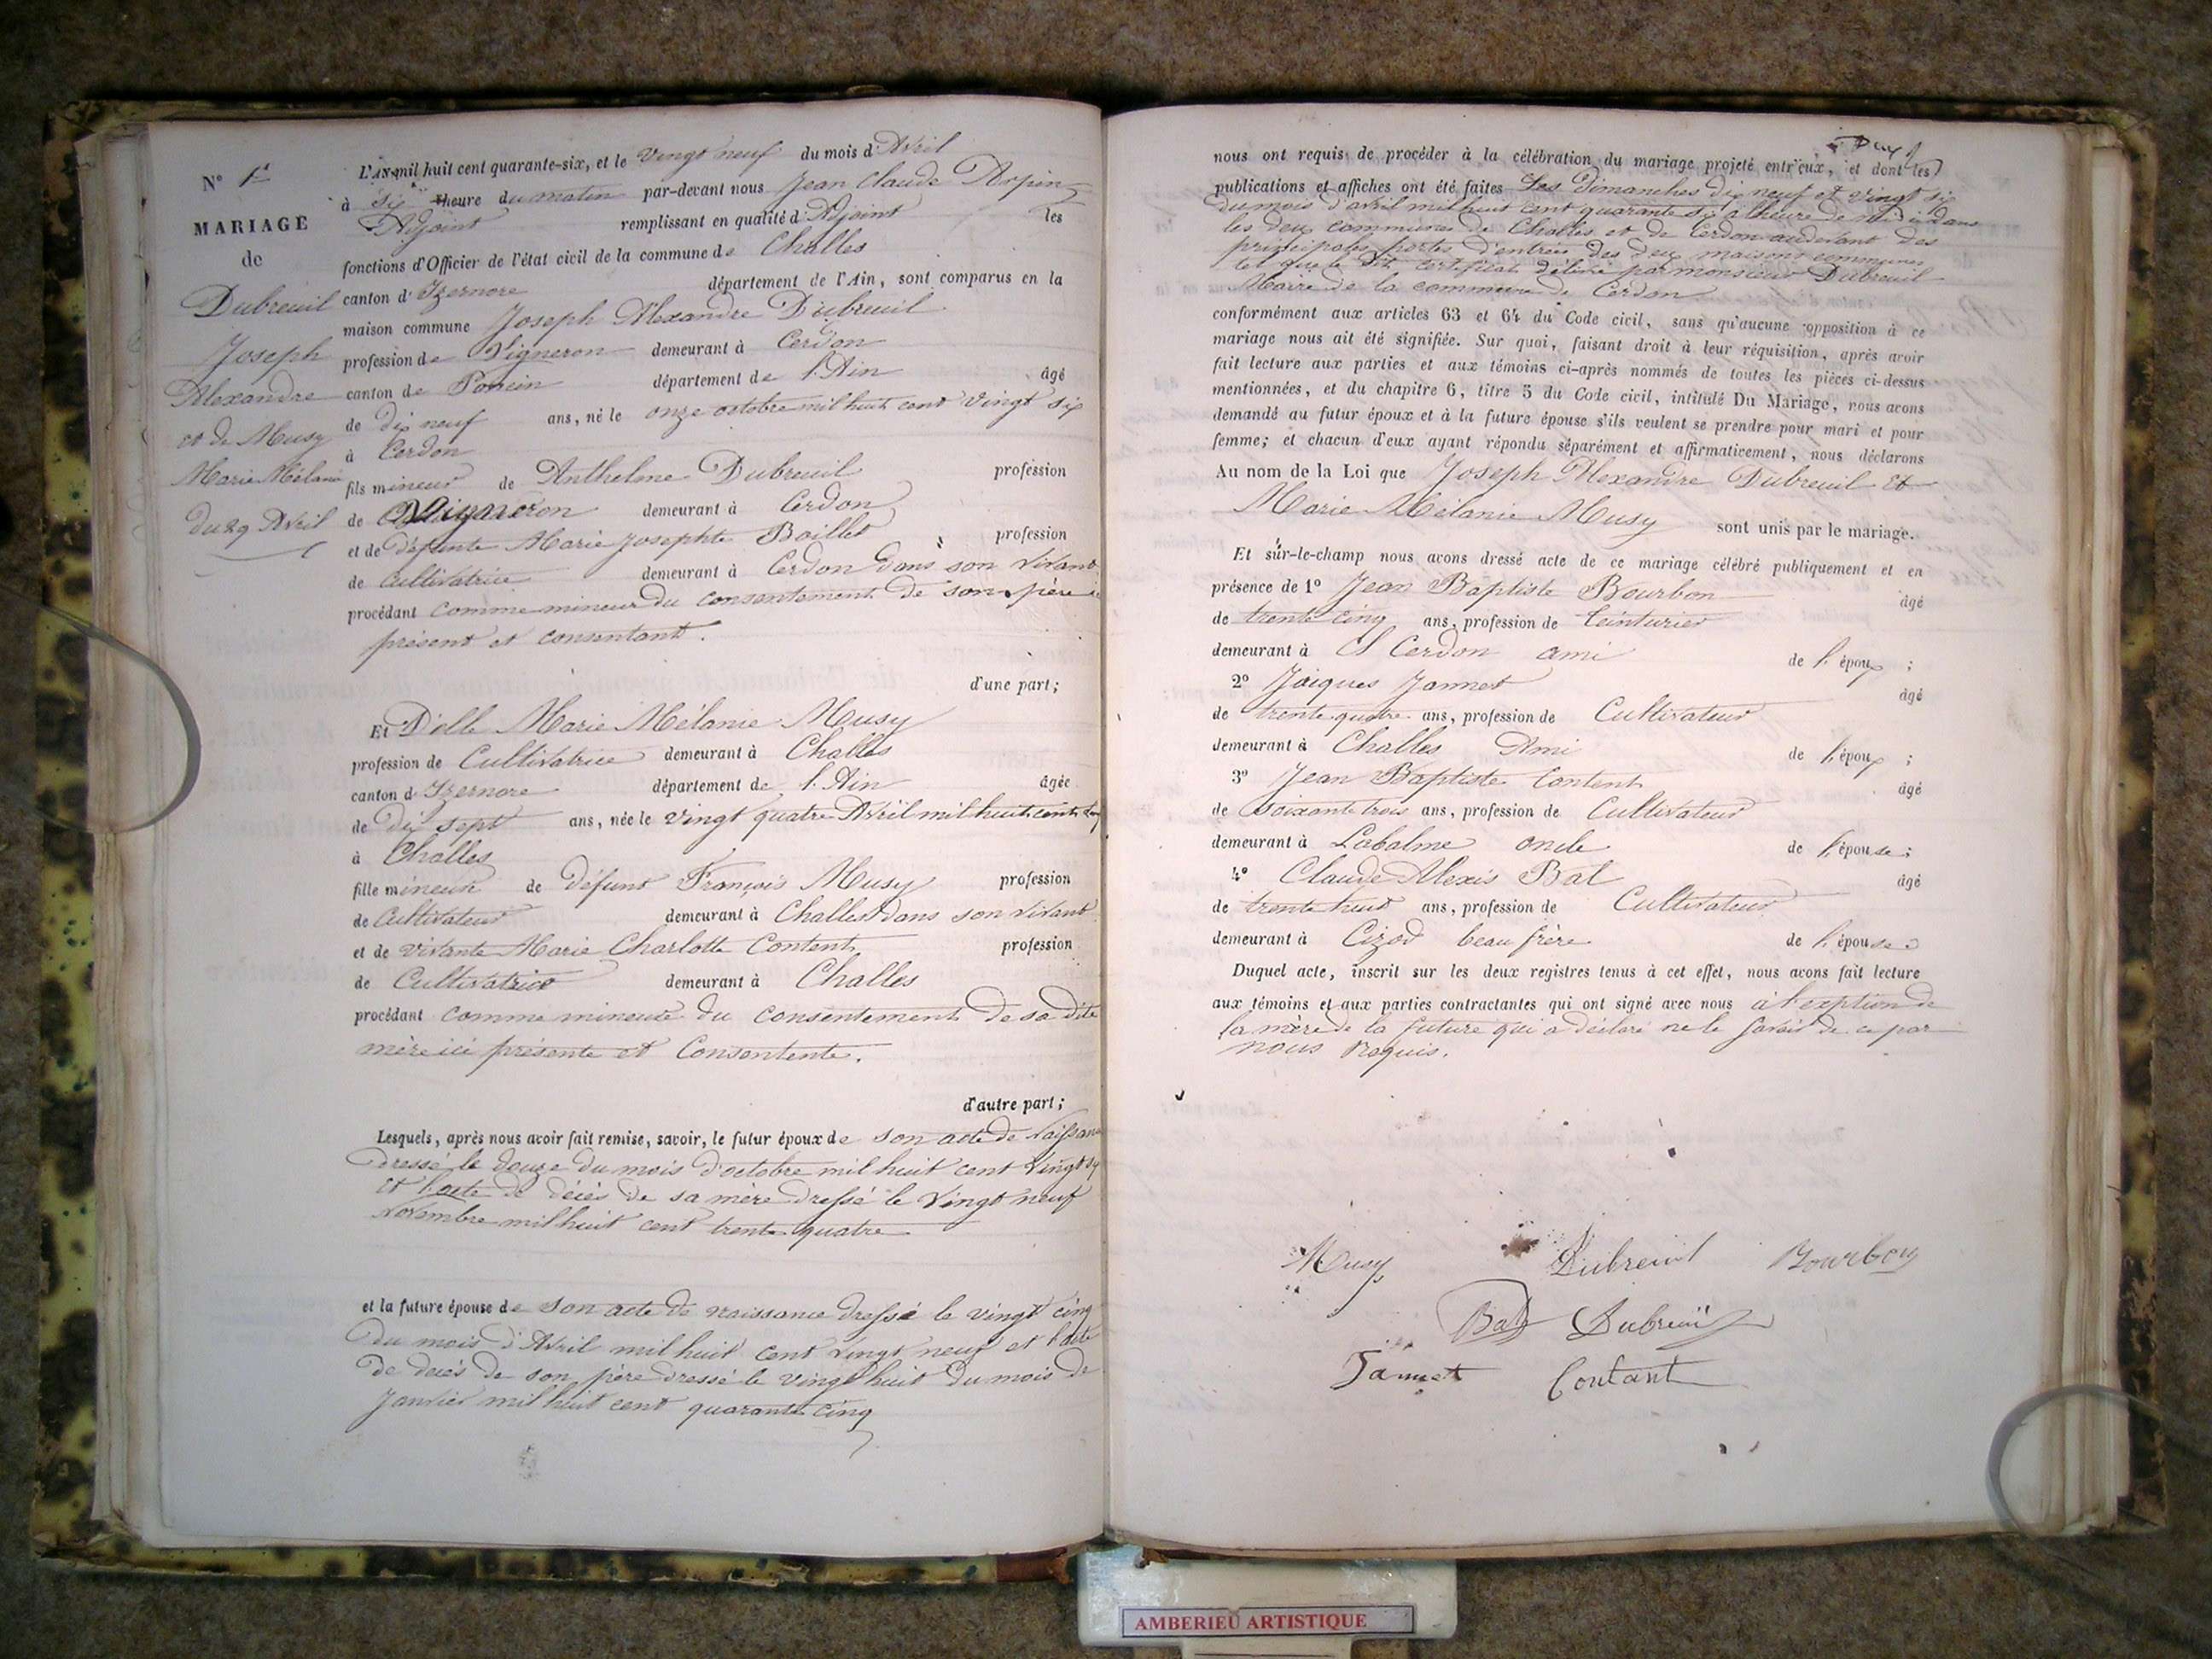 N° 1er
MARIAGE
de
Dubreuil
Joseph
Alexandre
et de Musy
Marie Mélanie
du 29 Avril
L'AN mil huit cent quarante-six, et le vingt neuf du mois d'Avril
à six heure du matin par-devant nous Jean Claude Arpin
Adjoint remplissant en qualité d'Adjoint les
fonctions d'Officier de l'état civil de la commune de Challes
canton d'Izernore département de l'Ain, sont comparus en la
maison commune Joseph Alexandre Dubreuil
profession de Vigneron demeurant à Cerdon
canton de Poncin département de l'Ain âgé
de dix neuf ans, né le onze octobre mil huit cent vingt six
à Cerdon
fils mineur de Anthelme Dubreuil profession
de Vigneron demeurant à Cerdon
et de défunte Marie Josephte Baillet profession
de Cultivatrice demeurant à Cerdon dans son vivant
procédant comme mineur du consentement de son père ici
présent et consentant.
d'une part;
Et Delle Marie Mélanie Musy
profession de Cultivatrice demeurant à Challes
canton d'Izernore département de l'Ain âgée
de dix sept ans, née le vingt quatre Avril mil huit cent
à Challes
fille mineure de défunt François Musy profession
de Cultivateur demeurant à Challes dans son vivant
et de vivante Marie Charlotte Content profession
de Cultivatrice demeurant à Challes
procédant comme mineure du consentement de sa dite
mère ici présente et Consentente.
d'autre part;
Lesquels, après nous avoir fait remise, savoir, le futur époux de son acte de Naissance
dressé le douze du mois d'octobre mil huit cent vingt six
et l'acte de décès de sa mère dressé le vingt neuf
Novembre mil huit cent trente quatre
et la future épouse de son acte de naissance dressé le vingt cinq
du mois d'Avril mil huit cent vingt neuf et l'acte
de décés de son père dressé le vingt huit du mois de
Janvier mil huit cent quarante cinq
nous ont requis de procéder à la célébration du mariage projeté entr'eux, et dont les
publications et affiches ont été faites Les dimanches dix neuf et vingt six
du mois d'avril mil huit cent quarante six à l'heure de midi dans
les deux communes de Challes et de Cerdon audevant des
principales portes d'entrées des deux maisons communes
tel que le dit certificat délivré par monsieur Dubreuil
Maire de la commune de Cerdon
conformément aux articles 63 et 64 du Code civil, sans qu'aucune opposition à ce
mariage nous ait été signifiée. Sur quoi, faisant droit à leur réquisition, après avoir
fait lecture aux parties et aux témoins ci-après nommés de toutes les pièces ci-dessus
mentionnées, et du chapitre 6, titre 5 du Code civil, intitulé Du Mariage, nous avons
demandé au futur époux et à la future épouse s'ils veulent se prendre pour mari et pour
femme; et chacun d'eux ayant répondu séparément et affirmativement, nous déclarons
Au nom de la Loi que Joseph Alexandre Dubreuil Et
Marie Mélanie Musy sont unis par le mariage.
Et sur-le-champ nous avons dressé acte de ce mariage célébré publiquement et en
présence de 1° Jean Baptiste Bourbon âgé
de trente cinq ans, profession de teinturier
demeurant à Cerdon ami de l'époux ;
2° Jacques Jannet âgé
de trente quatre ans, profession de Cultivateur
demeurant à Challes Ami de l'époux ;
3° Jean Baptiste Content âgé
de Soixante trois ans, profession de Cultivateur
demeurant à Labalme oncle de l'épouse;
4° Claude Alexis Bal âgé
de trente huit ans, profession de Cultivateur
demeurant à Cizod beau frère de l'épouse
Duquel acte, inscrit sur les deux registres tenus à cet effet, nous avons fait lecture
aux témoins et aux parties contractantes qui ont signé avec nous à l'exption de
la mère de la future qui a déclaré ne le savoir de ce par
nous Requis.
Musy Dubreuil Bourbon
Bal Dubreuil
Jannet Contant
AMBERIEU ARTISTIQUE